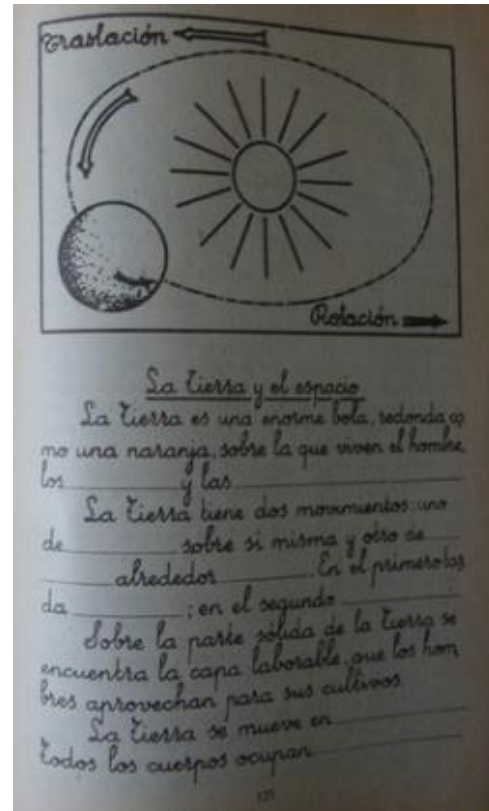 Traslación
Rotación
La Tierra y el espacio
La Tierra es una enorme bola, redonda co
mo una naranja, sobre la que viven el hombre,
los ________ y las ________
La Tierra tiene dos movimientos: uno
de ________ sobre si misma y otro de ____
________ alrededor ________. En el primero tar
da ________; en el segundo ________
Sobre la parte sólida de la Tierra se
encuentra la capa laborable, que los hom
bres aprovechan para sus cultivos.
La Tierra se mueve en ________
Todos los cuerpos ocupan ________